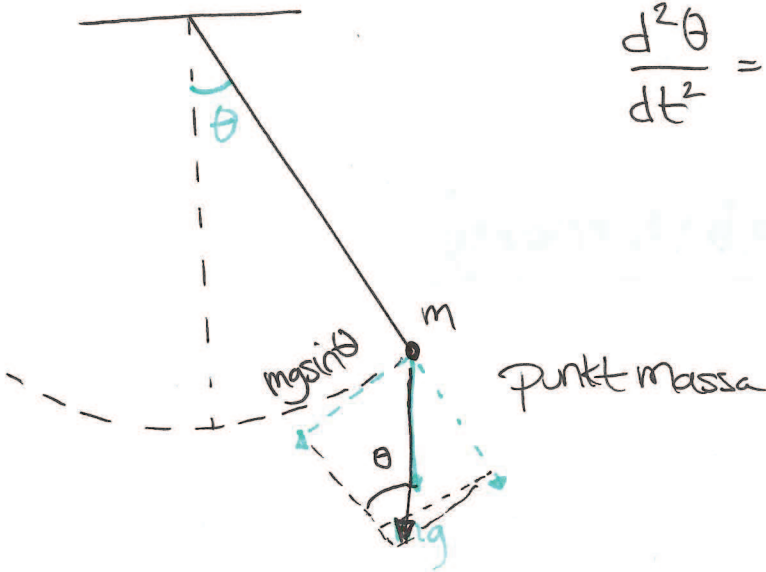 d²θ
dt²
=
θ
m
mgsinθ
punktmassa
θ
mg